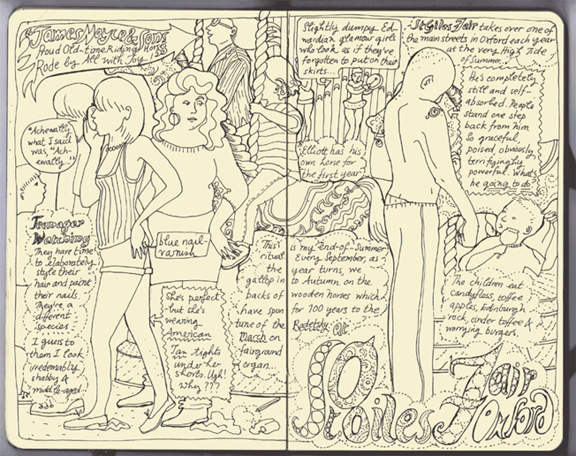 James Mayce & Sons
Proud Old-time Riding Horses
Rode by All with Joy
"Achewally,
what I said
was, "Ach-
ewally"
Teenager
Watching
They have time
to elaborately
style their
hair and paint
their nails.
They're a
different
species
I guess to
them I look
irredeemably
shabby &
middle-aged
blue nail-
varnish
She's perfect
but she's
wearing
American
Tan tights
under her
shorts. Ugh!
Why???
Slightly dumpy Ed-
wardian glamour girls
who look as if they've
forgotten to put on their
skirts...
Elliott has his
own horse for
the first year
St Giles Fair takes over one of
the main streets in Oxford each year
at the very High Tide
of Summer.
He's completely
still and self-
absorbed. People
stand one step
back from him
So graceful
poised obviously
terrifyingly
powerful. What's
he going to do?
This is my end-of-Summer
ritual. Every September, as
the year turns, we
gallop into Autumn on the
backs of wooden horses which
have spun for 100 years to the
tune of the Radetsky
March on
fairground
organ...
The children eat
candyfloss, toffee
apples, Edinburgh
rock, cinder toffee &
worrying burgers.
St Giles Fair
Oxford